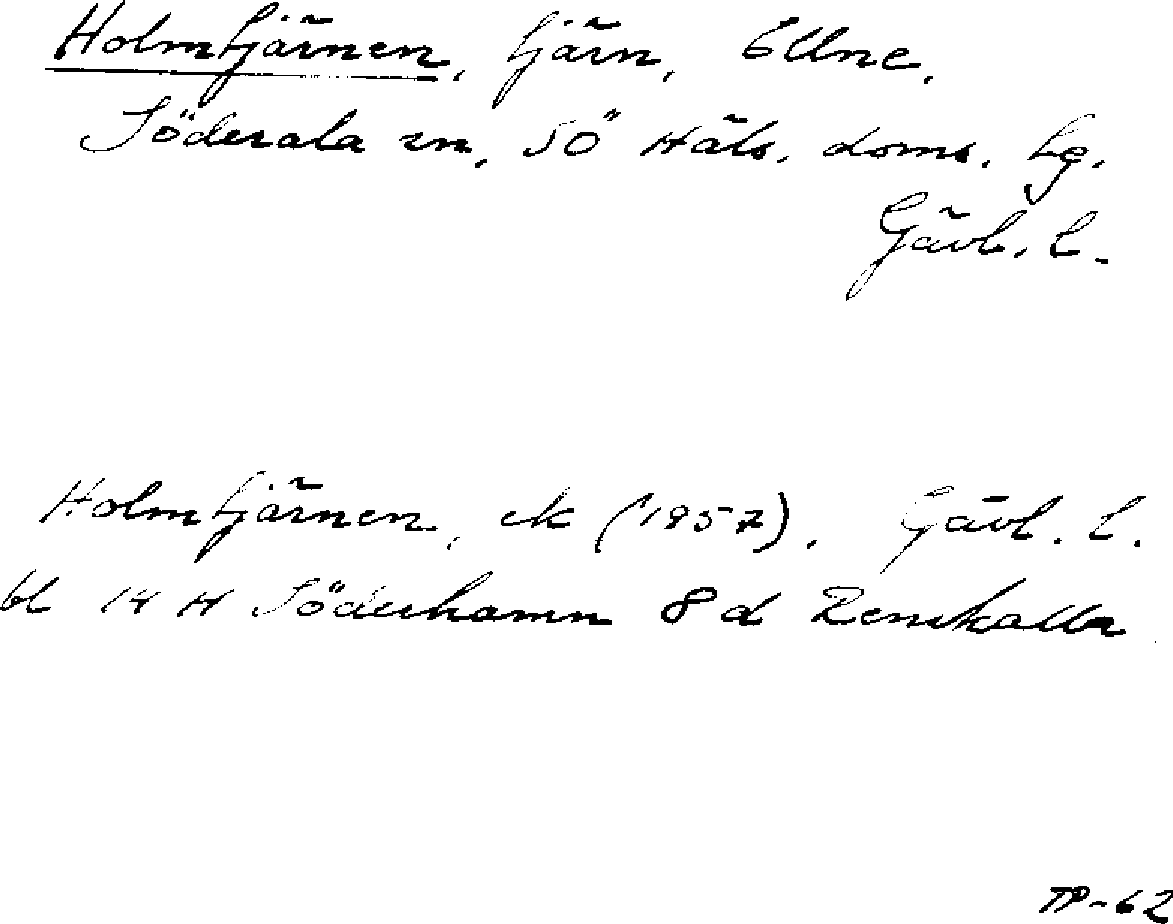 Holmtjärnen, tjärn, Ellne,
Söderala sn, SÖ Häls. doms. tg.
Gävl. l.
Holmtjärnen, ek (1957). Gävl. l.
bl 14 H Söderhamn 8 d Renskalla
TP-62